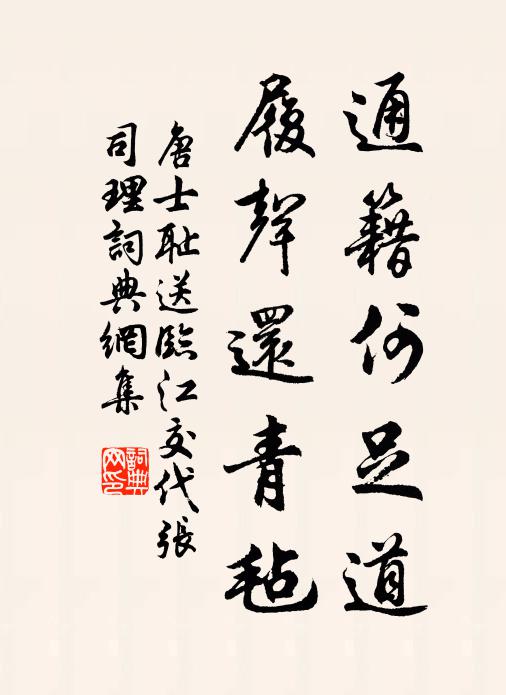 通籍何足道
履聲還青毡
唐士耻送臨江交代張
司理詞典網集
詞典
网印